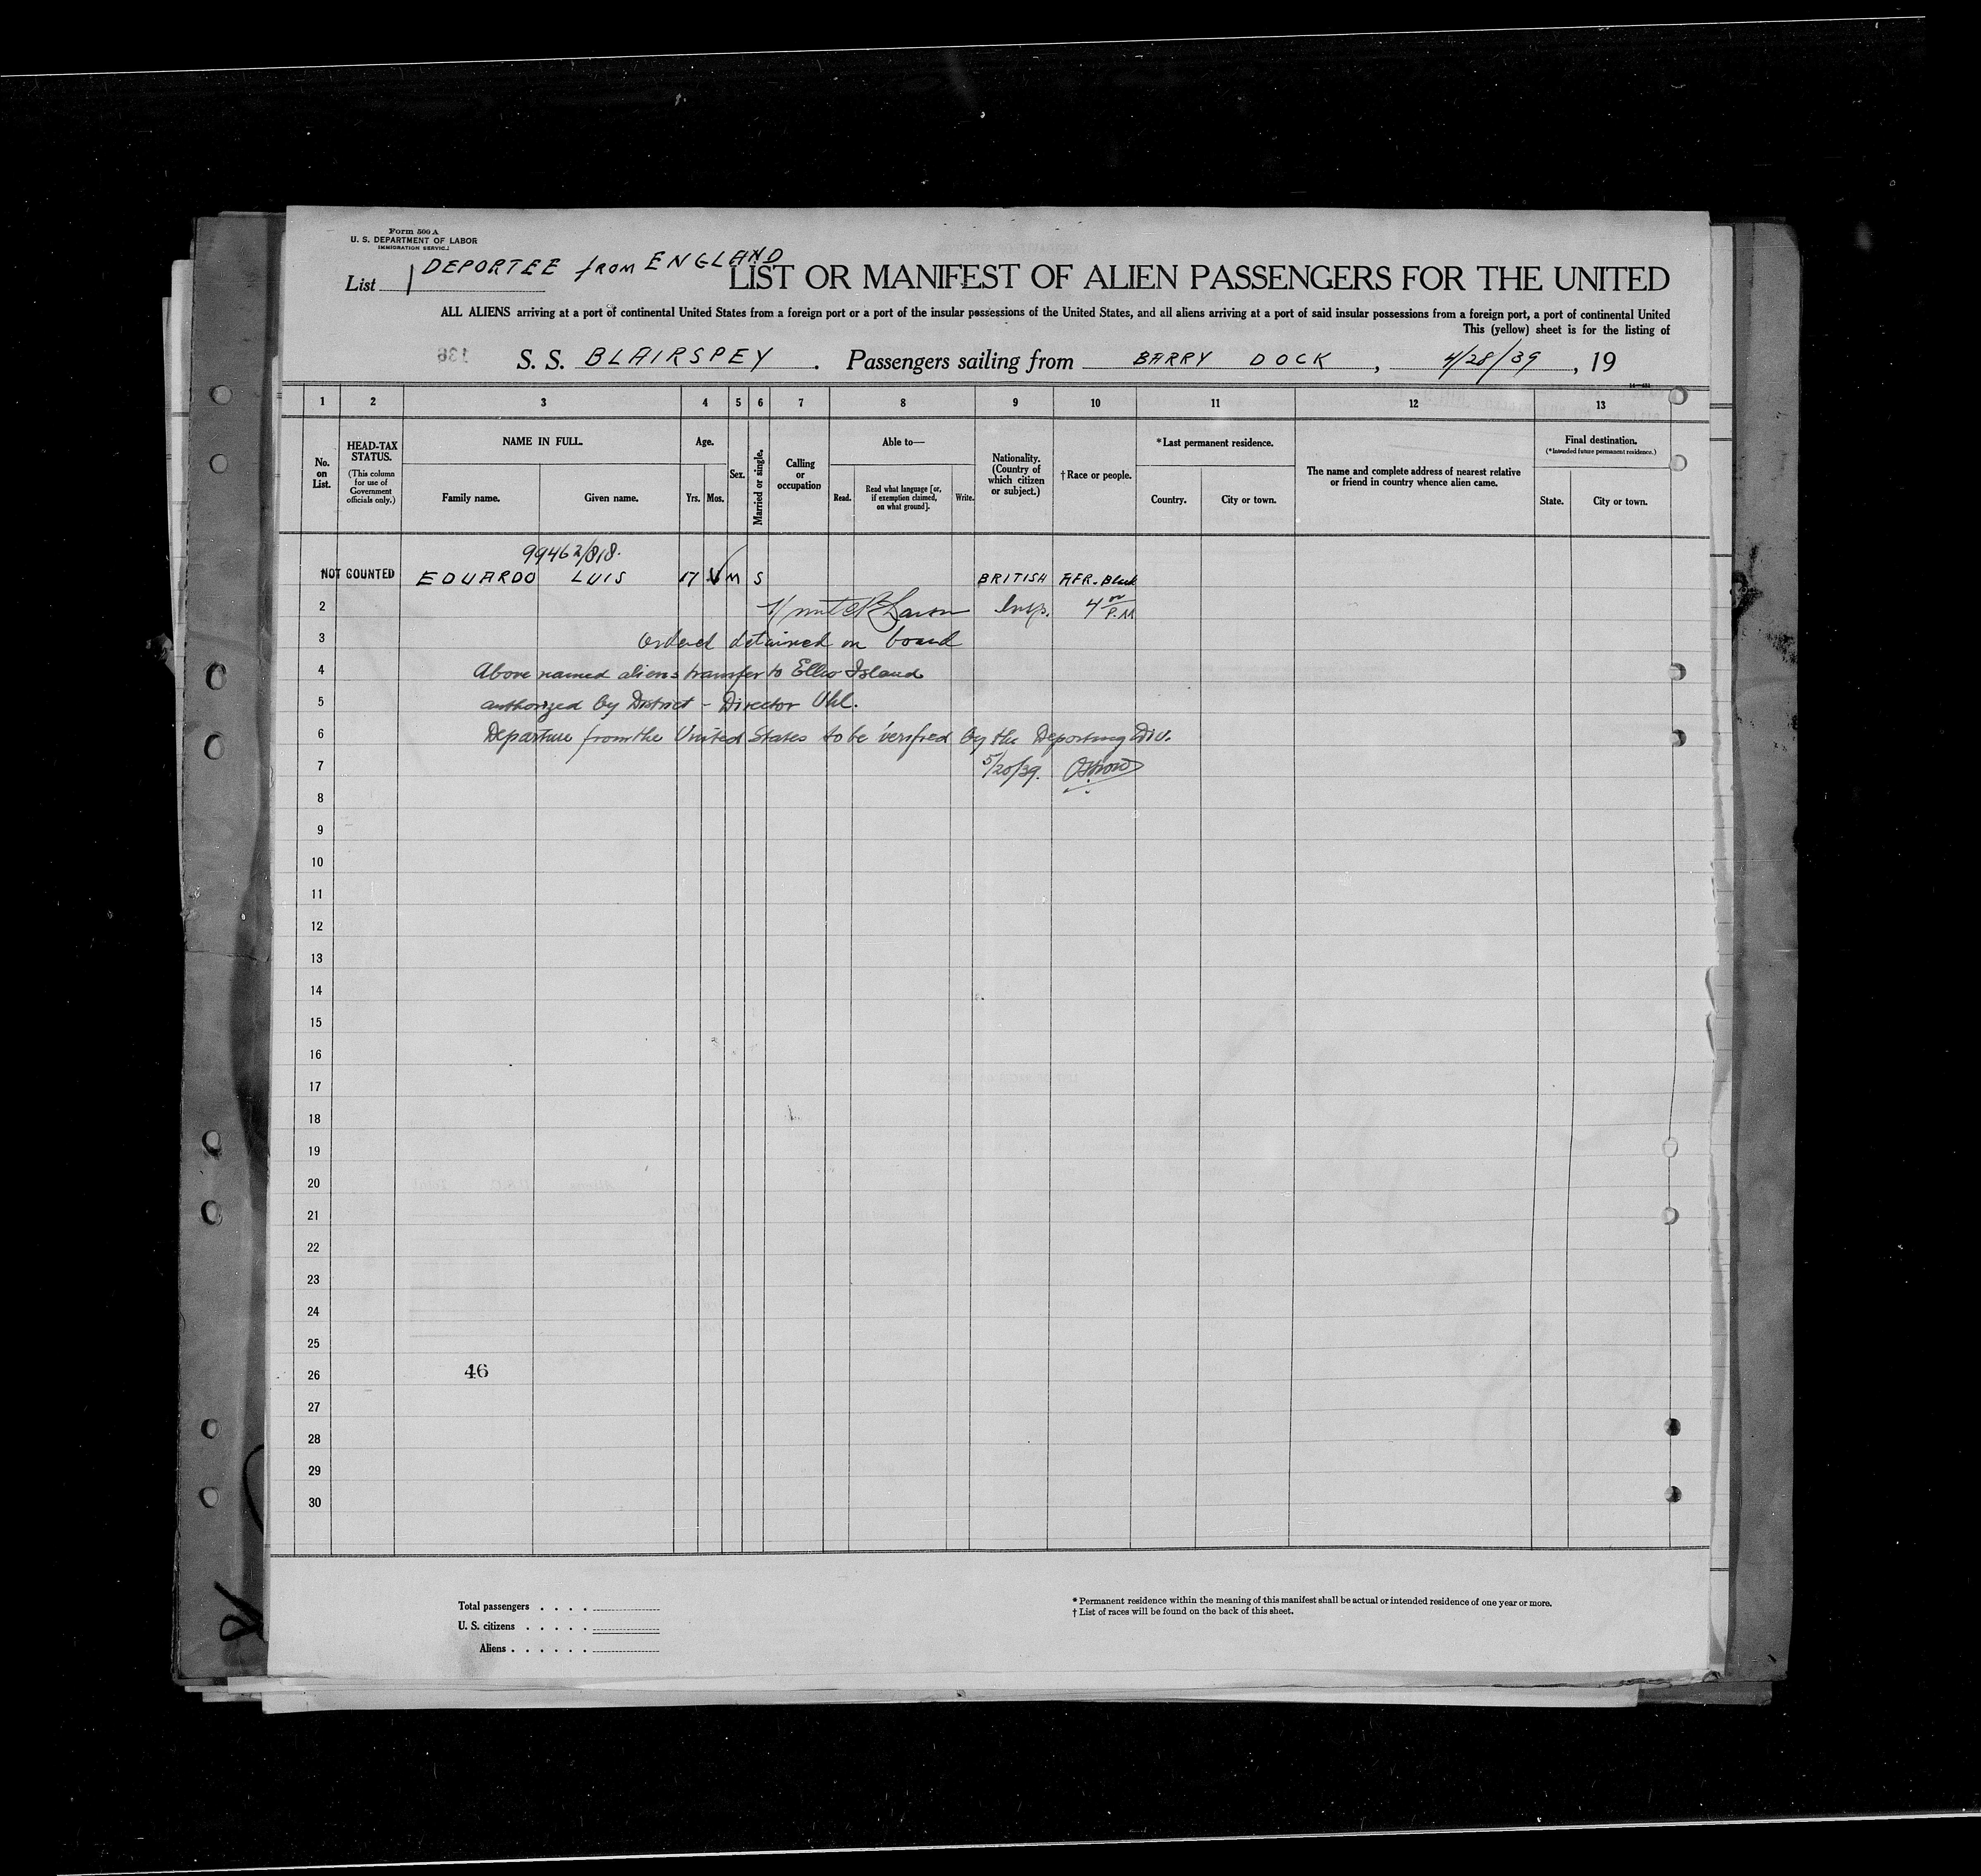 Form 500 A
U. S. DEPARTMENT OF LABOR
IMMIGRATION SERVICE
List 1 DEPORTEE from ENGLAND
LIST OR MANIFEST OF ALIEN PASSENGERS FOR THE UNITED
ALL ALIENS arriving at a port of continental United States from a foreign port or a port of the insular possessions of the United States, and all aliens arriving at a port of said insular possessions from a foreign port, a port of continental United
This (yellow) sheet is for the listing of
136
S. S. BLAIRSPEY . Passengers sailing from BARRY DOCK , 4/28/39 , 19
1 2 3 4 5 6 7 8 9 10 11 12 13
No. on List.
HEAD-TAX STATUS.
(This column for use of Government officials only.)
NAME IN FULL.
Family name. Given name.
Age.
Yrs. Mos.
Sex.
Married or single.
Calling or occupation
Able to—
Read. Read what language [or, if exemption claimed, on what ground]. Write.
Nationality. (Country of which citizen or subject.)
†Race or people.
*Last permanent residence.
Country. City or town.
The name and complete address of nearest relative or friend in country whence alien came.
Final destination.
(*Intended future permanent residence.)
State. City or town.
99462/818.
NOT COUNTED EDUARDO LUIS 17 M S BRITISH AFR. Black
2 Insp. 4 00 P.M
3 Ordered detained on board
4 Above named aliens transfer to Ellis Island
5 authorized by District - Director Uhl.
6 Departure from the United States to be verified by the Deporting Div.
7 5/20/39.
8
9
10
11
12
13
14
15
16
17
18
19
20
21
22
23
24
25
26 46
27
28
29
30
Total passengers . . . .
U. S. citizens . . . . .
Aliens . . . . . .
* Permanent residence within the meaning of this manifest shall be actual or intended residence of one year or more.
† List of races will be found on the back of this sheet.